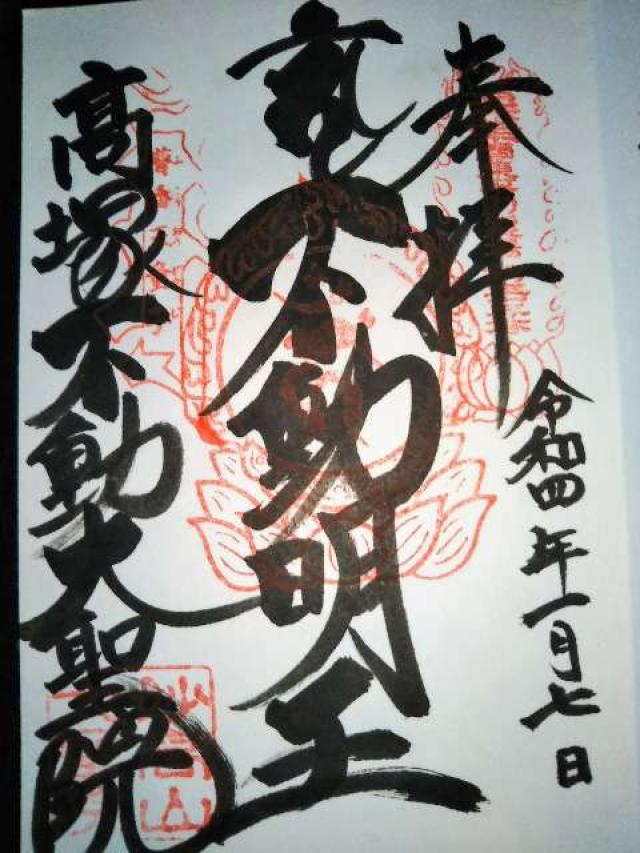 奉拝
令和四年一月七日
不動明王
高塚不動大聖院